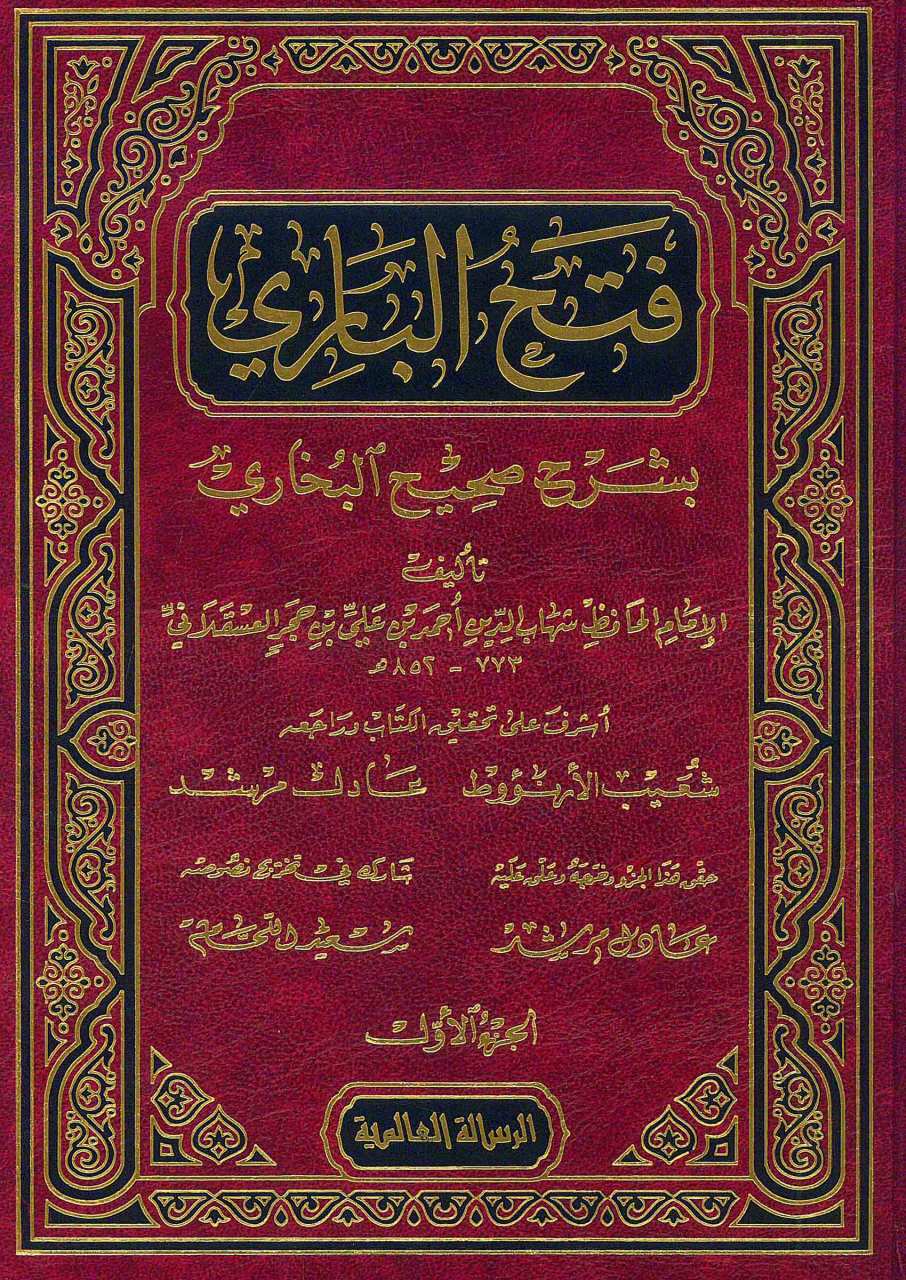 فَتْحُ البَارِي
بشَرْح صَحِيْح البُخَاري
تأليف
الإمَامِ الحَافِظِ شهَابِ الدِّينِ أحمَدَ بْنِ عَليِّ بْنِ حَجَرٍ العَسْقَلَانيِّ
٧٧٣ - ٨٥٢ هـ
أشرفَ على تحقيق الكتَاب وراجَعه
شُعَيب الأرنؤوط عَادل مرشد
حقق هَذا الجزء وخرّجه وعَلّق عَليْه شَارك في تخريج نصُوصه
عَادل مرشد سَعيد اللحّام
الجزء الأوّل
الرسالة العالمية